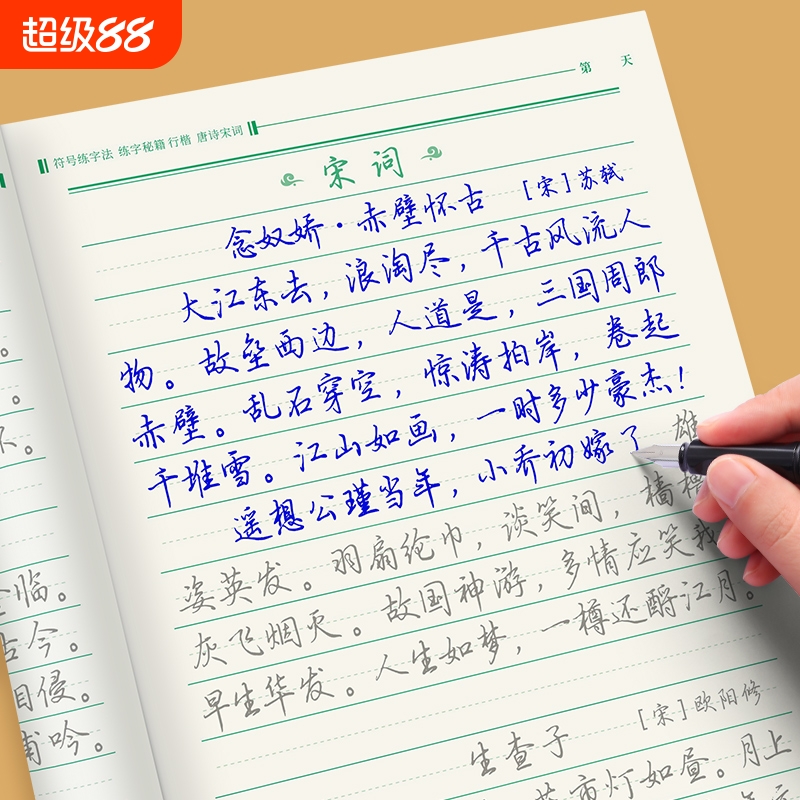 超级88
第 天
符号练字法 练字秘籍 行楷 唐诗宋词
宋词
念奴娇·赤壁怀古 [宋]苏轼
大江东去，浪淘尽，千古风流人
物。故垒西边，人道是，三国周郎
赤壁。乱石穿空，惊涛拍岸，卷起
千堆雪。江山如画，一时多少豪杰！
遥想公瑾当年，小乔初嫁了 雄
姿英发。羽扇纶巾，谈笑间，樯橹
灰飞烟灭。故国神游，多情应笑我
早生华发。人生如梦，一樽还酹江月。
生查子 [宋]欧阳修
市灯如昼。月上
临。
古今。
相侵。
甫吟。